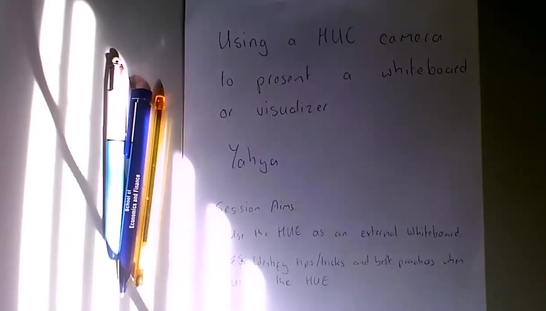 Using a HUE camera
to present a whiteboard
or visualizer
Yahya
Session Aims
Use the HUE as an external whiteboard
tips/tricks and best practices when
the HUE
School of
Economics and Finance